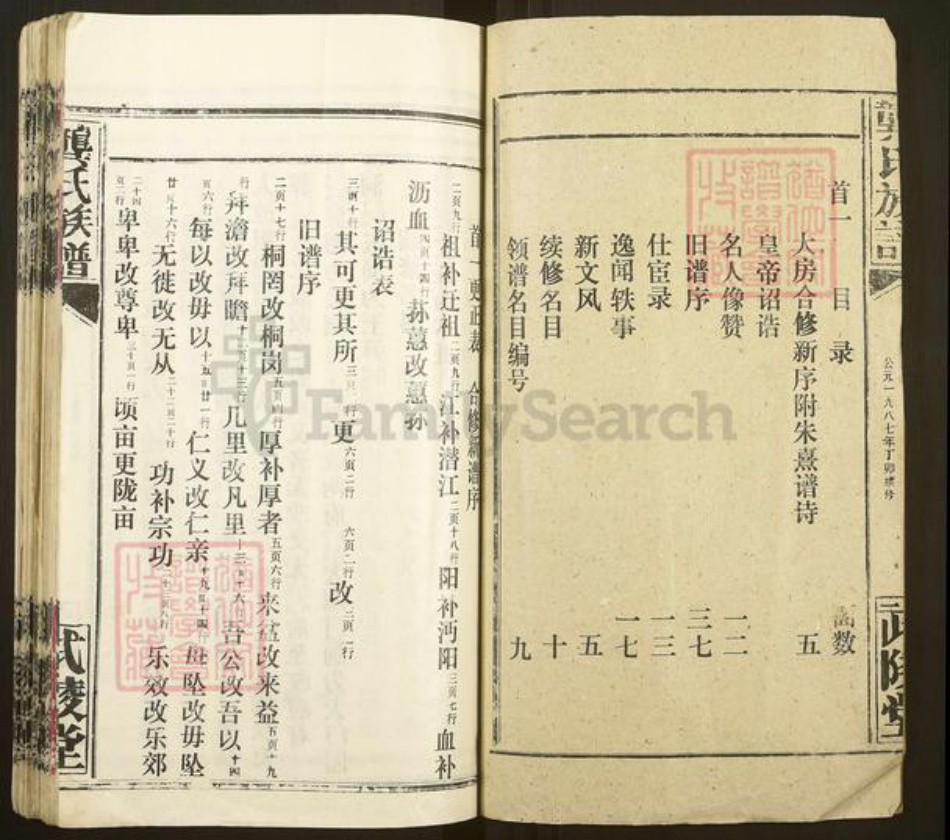 首一 目录 面数
大房合修新序附朱熹谱诗 五
皇帝诏诰
名人像赞 一二
旧谱序 三七
仕宦录 一三
逸闻轶事 一七
新文风 五
续修名目 十
领谱名目编号 九
公元一九八七年丁卯续修
武陵堂
首一更正表 合修新谱序
二页九行 祖补迁祖 二页九行 江补潜江 二页十八行 阳补沔阳 三页七行 血补
沥血 四页十四行 荪蕙改蕙荪
诏诰表
其可更其所 更 六页二行 六页二行 改 二页一行
旧谱序
二页十七行 桐罔改桐岗 五页四行 厚补厚者 五页六行 来盆改来益 五页十九
行 拜澹改拜瞻 十一页十三行 几里改凡里 吾公改吾以 十四
页六行 每以改毋以 十五页廿一行 仁义改仁亲 十九页十四行 每坠改毋坠
廿页十六行 无徙改无从 二十二页二十行 功补宗功 乐效改乐郊
二十四页二行 卑卑改尊卑 三十页一行 顷亩更陇亩
龚氏族谱
武陵堂
FamilySearch